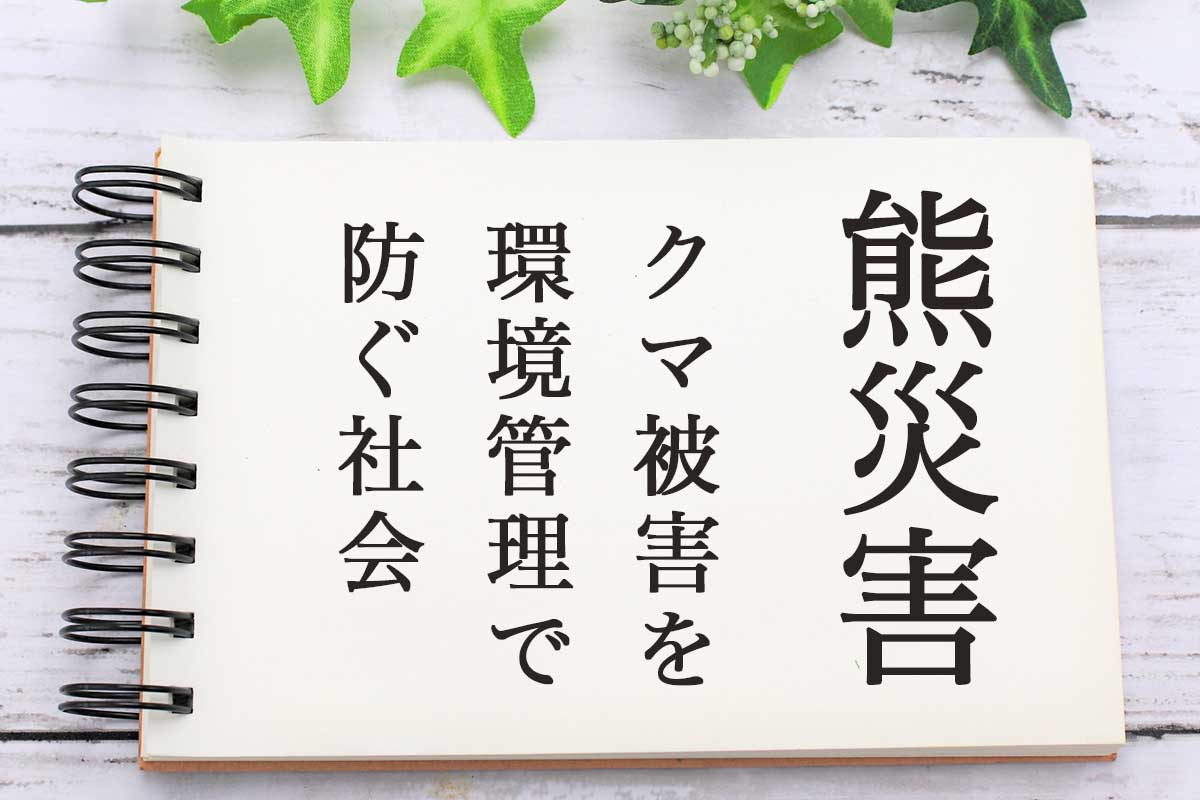 熊災害
クマ被害を
環境管理で
防ぐ社会